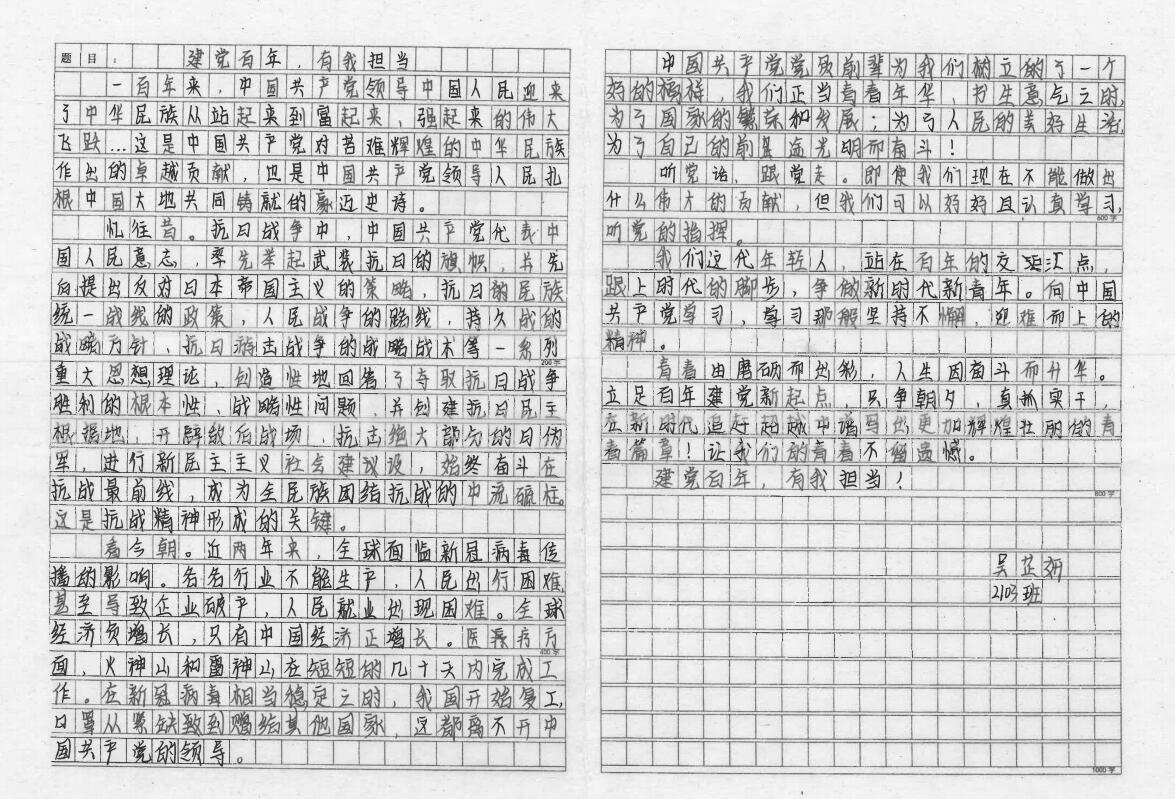 题目：建党百年，有我担当
一百年来，中国共产党领导中国人民迎来
了中华民族从站起来到富起来，强起来的伟大
飞跃…这是中国共产党对苦难辉煌的中华民族
作出的卓越贡献，也是中国共产党领导人民扎
根中国大地共同铸就的豪迈史诗。
忆往昔。抗日战争中，中国共产党代表中
国人民意志，率先举起武装抗日的旗帜，并先
向提出反对日本帝国主义的策略，抗日的民族
统一战线的政策，人民战争的路线，持久战的
战略方针、抗日游击战争的战略战术等一系列
200字
重大思想理论，创造性地回答了夺取抗日战争
胜利的根本性、战略性问题，并创建抗日民主
根据地，开辟敌后战场，抗击绝大部分的日伪
军，进行新民主主义社会建议设，始终奋斗在
抗战最前线，成为全民族团结抗战的中流砥柱。
这是抗战精神形成的关键。
看今朝。近两年来，全球面临新冠病毒传
播的影响。各各行业不能生产，人民出行困难，
甚至导致企业破产，人民就业出现困难。全球
经济负增长，只有中国经济正增长。医疗方
400字
面，火神山和雷神山在短短的几十天内完成工
作。在新冠病毒相当稳定之时，我国开始复工，
口罩从紧缺致到赠给其他国家，这都离不开中
国共产党的领导。
中国共产党党员前辈为我们树立的了一个
好的榜样，我们正当青春年华，书生意气之时，
为了国家的繁荣和发展；为了人民的美好生活，
为了自己的前途光明而奋斗！
听党话，跟党走。即使我们现在不能做出
什么伟大的贡献，但我们可以好好且认真学习，
600字
听党的指挥。
我们这代年轻人，站在百年的交汇点，
跟上时代的脚步，争做新时代新青年。向中国
共产党学习，学习那般坚持不懈，迎难而上的
精神。
青春由磨砺而出彩，人生因奋斗而升华。
立足百年建党新起点，只争朝夕，真抓实干，
在新时代追赶超越中谱写出更加辉煌壮丽的青
春篇章！让我们的青春不留遗憾。
建党百年，有我担当！
800字
吴芷妍
2103班
1000字